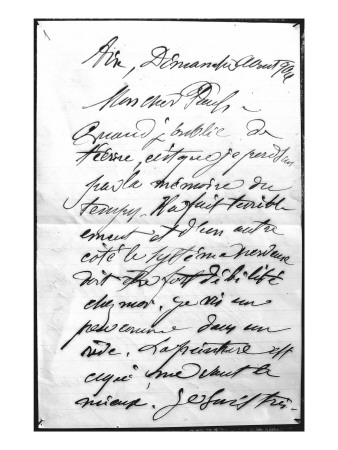 Aix, Dimanche, Aout 906
Mon cher Paul,
Quand j'oublie de
t'écrire, c'est que je perds un
peu la mémoire du
temps. Il a fait terrible
ment et d'un autre
côté le système nerveux
doit être fort débilité
chez moi. je vis un
peu comme dans un
vide. La peinture est
ce qui me vaut le
mieux. Je suis très-